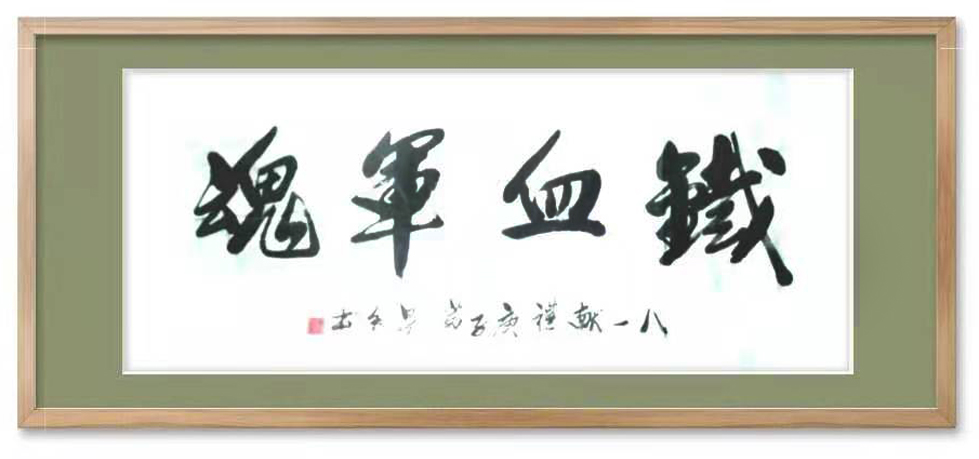 鐵血軍魂
八一献禮庚子